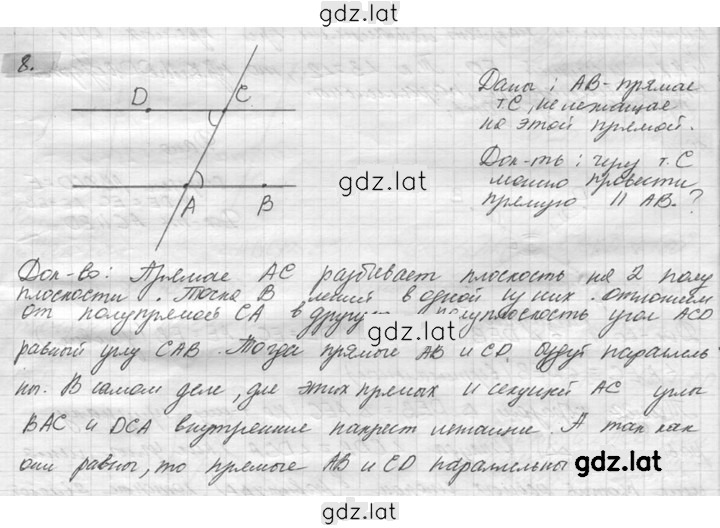 gdz.lat
8.
D
C
A
B
Даны: АВ-прямая
т.С, не лежащая
на этой прямой.
gdz.lat
Док-ть: через т.С
можно провести
прямую || АВ.?
Док-во: Прямая АС разбивает плоскость на 2 полу
плоскости. Точка В лежит в одной из них. отложим
от полупрямой СА в другую полуплоскость угол АСD
gdz.lat
равный углу САВ. Тогда прямые АВ и СD, будут параллель
ны. В самом деле, для этих прямых и секущей АС углы
ВАС и DСА внутренние накрест лежащие. А так как
они равны, то прямые АВ и СD параллельны
gdz.lat
gdz.lat